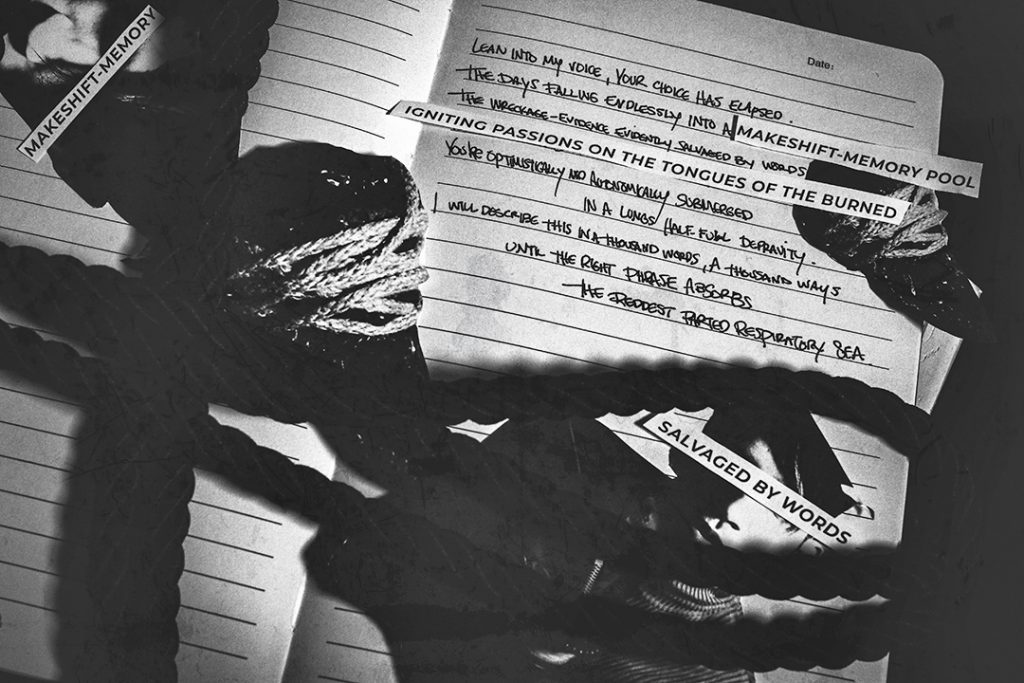 MAKESHIFT-MEMORY
Date:
LEAN INTO MY VOICE, YOUR CHOICE HAS ELAPSED.
THE DAYS FALLING ENDLESSLY INTO A MAKESHIFT-MEMORY POOL
THE WRECKAGE-EVIDENCE EVIDENTLY SALVAGED BY WORDS
IGNITING PASSIONS ON THE TONGUES OF THE BURNED
YOU'RE OPTIMISTICALLY AND AUTONOMICALLY SUBMERGED
IN A LUNGS/HALF FULL DEPRAVITY.
I WILL DESCRIBE THIS IN A THOUSAND WORDS, A THOUSAND WAYS
UNTIL THE RIGHT PHRASE ABSORBS
THE REDDEST PARTED RESPIRATORY SEA
SALVAGED BY WORDS